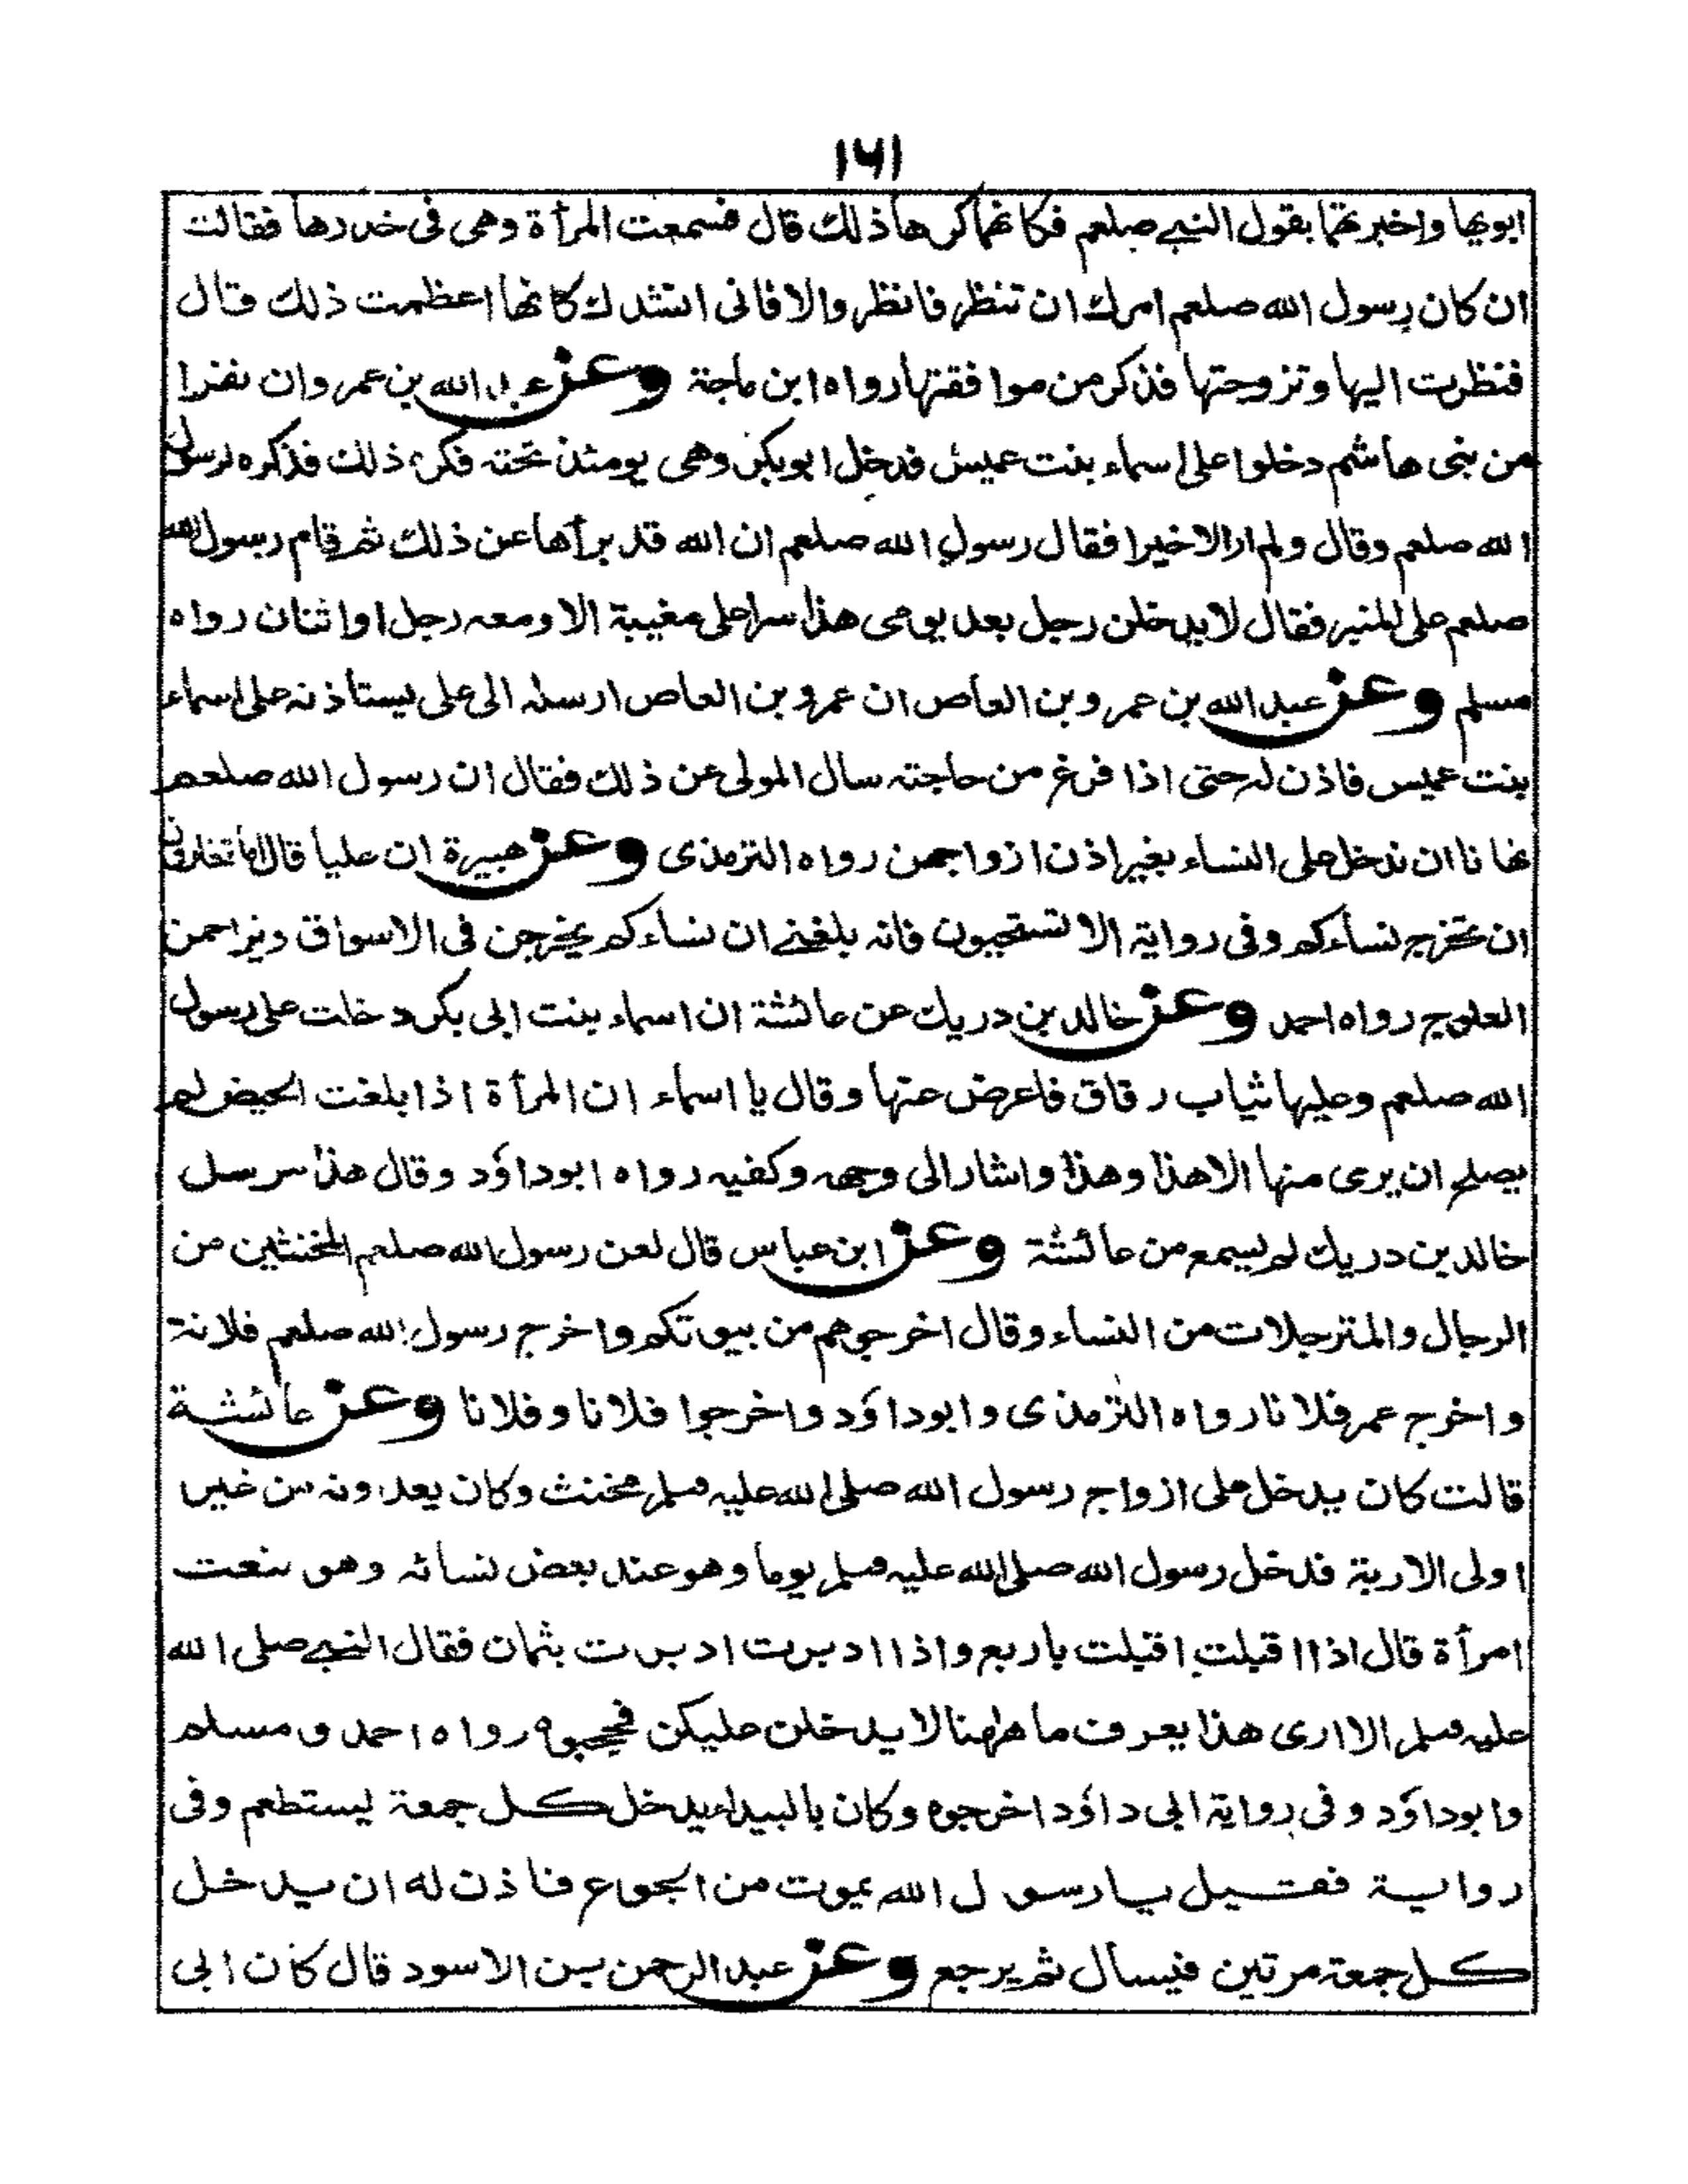 ۱۶۱
ابويها واخبرتهما بقول النبي صلعم فكانهما كرهاذلك قال فسمعت المرأة وهى فى خدرها فقالت
ان كان رسول الله صلعم امرك ان تنظر فانظر والا فانى انشدك كانها اعظمت ذلك قال
فنظرت اليها وتزوجتها فذكر من موافقتها رواه ابن ماجة وعن عبد الله بن عمر وان نفرا
من بنى هاشم دخلوا على اسماء بنت عميس فدخل ابوبكر وهى يومئذ تحته فكره ذلك فذكره لرسول
الله صلعم وقال ولم ار الاخيرا فقال رسول الله صلعم ان الله قد برأها عن ذلك ثم قام رسول الله
صلعم على المنبر فقال لا يدخلن رجل بعد يومى هذا سرا على مغيبة الا ومعه رجل او اثنان رواه
مسلم وعن عبد الله بن عمرو بن العاص ان عمرو بن العاص ارسله الى على يستاذنه على اسماء
بنت عميس فاذن له حتى اذا فرغ من حاجته سال المولى عن ذلك فقال ان رسول الله صلعم
نهانا ان ندخل على النساء بغير اذن ازواجهن رواه الترمذى وعن هبيرة ان عليا قال
ان تخرج نساءكم وفى رواية الا تستحيون فانه بلغنے ان نساءكم يخرجن فى الاسواق ويزاحمن
العلوج رواه احمد وعن خالد بن دريك عن عائشة ان اسماء بنت ابى بكر دخلت على رسول
الله صلعم وعليها ثياب رقاق فاعرض عنها وقال يا اسماء ان المرأة اذا بلغت الحيض لم
يصلح ان يرى منها الا هذا وهذا واشار الى وجهه وكفيه رواه ابوداؤد وقال هذا مرسل
خالد بن دريك لم يسمع من عائشة وعن ابن عباس قال لعن رسول الله صلعم المخنثين من
الرجال والمترجلات من النساء وقال اخرجوهم من بيوتكم واخرج رسول الله صلعم فلانة
واخرج عمر فلانا رواه الترمذى وابوداؤد واخرجوا فلانا وفلانا وعن عائشة
قالت كان يدخل على ازواج رسول الله صلى الله عليه وسلم مخنث وكان يعدونه من غير
اولى الاربة فدخل رسول الله صلى الله عليه وسلم يوما وهو عند بعض نسائه وهو ينعت
امرأة قال اذا اقبلت اقبلت باربع واذا ادبرت ادبرت بثمان فقال النبے صلى الله
عليه وسلم الا ارى هذا يعرف ما ههنا لا يدخلن عليكن فحجبوه رواه احمد و مسلم
وابوداؤد وفى رواية ابى داؤد اخرجوه وكان بالبيداء يدخل كل جمعة يستطعم وفى
رواية فقيل يا رسول الله يموت من الجوع فاذن له ان يدخل
كل جمعة مرتين فيسأل ثم يرجع وعن عبد الرحمن بن الاسود قال كان ابى